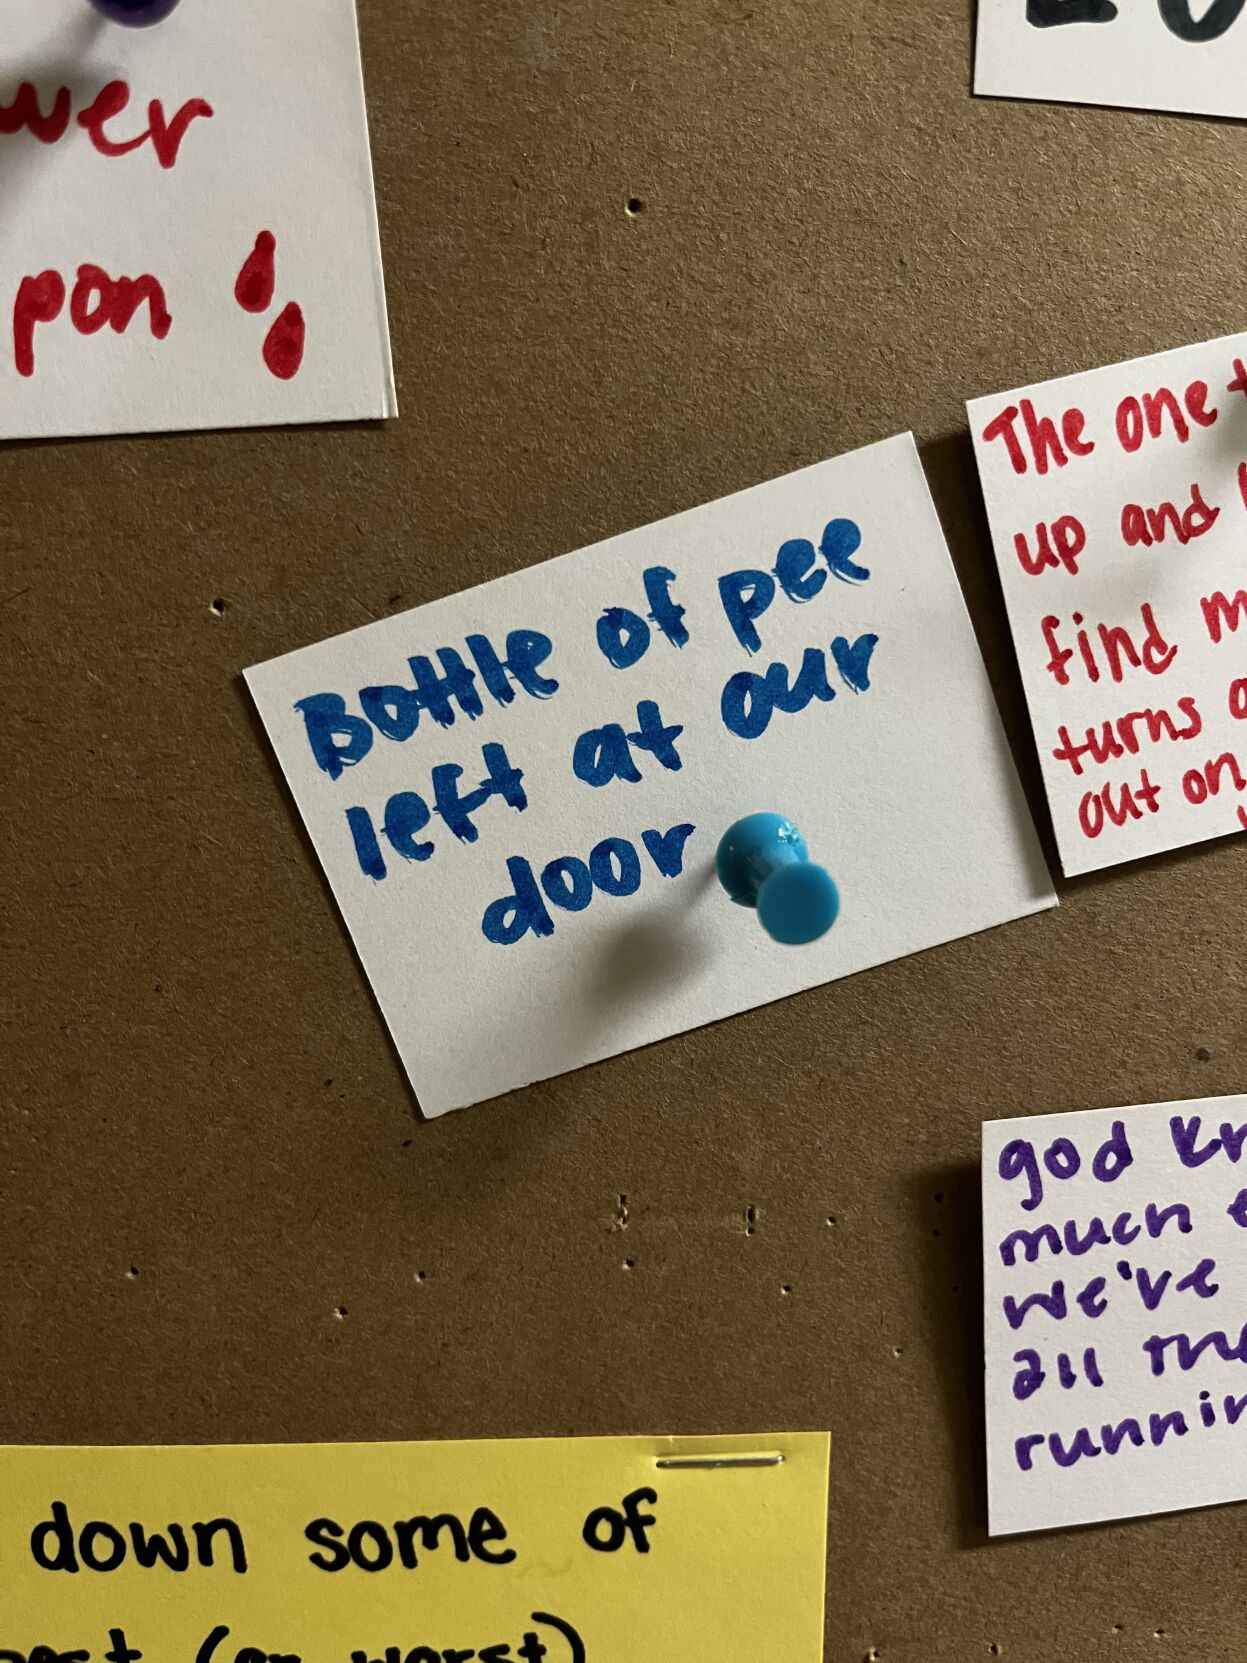 pon
Bottle of pee
left at our
door
The one
up and
find
turns
out on
god
much
we've
all
down some of
(or worst)